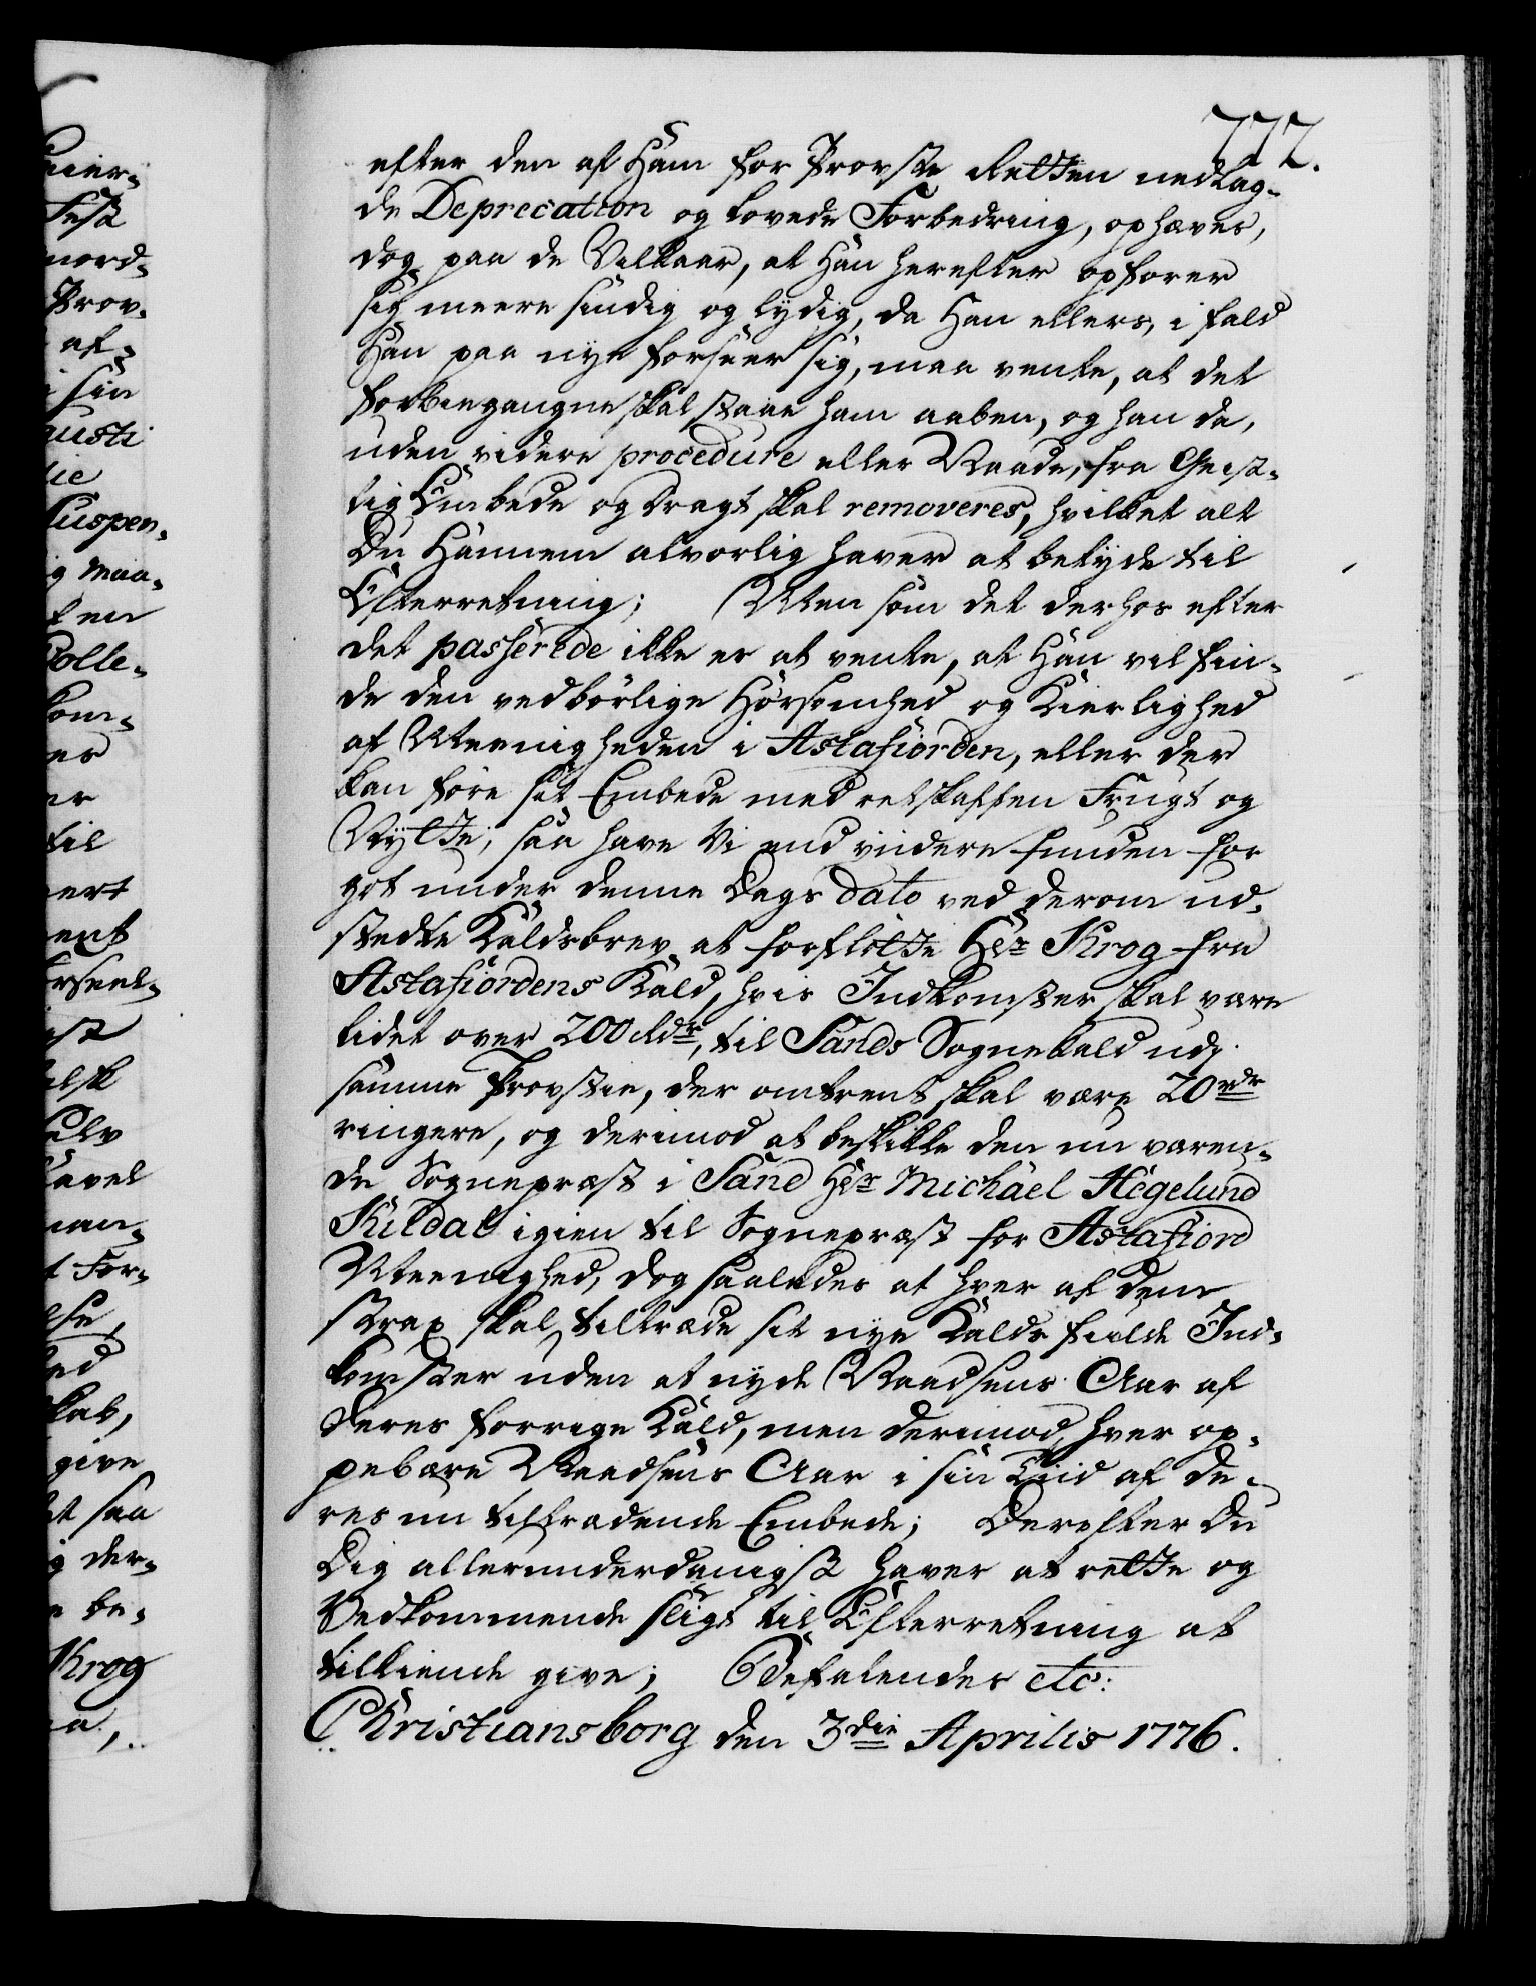 772.
efter den af Ham for Provste Retten nedlag-
de Deprecation og lovede Forbedring, ophæves,
dog paa de Vilkaar, at Han herefter opfører
sig meere sindig og lydig, da Han ellers, i fald
Han paa nye forseer sig, maa vente, at det
forbigangne skal staae ham aaben, og han da,
uden videre procedure eller Naade, fra Geist-
lig Embede og Dragt skal removeres, hvilket alt
Du Hannem alvorlig haver at betyde til
Efterretning; Men som det derhos efter
det passerede ikke er at vente, at Han vil fin-
de den vedbørlige Hørsomhed og Kierlighed
af Meenigheden i Astafiorden, eller der
kan føre sit Embede med retskaffen Frugt og
Nytte; saa have Vi end viidere funden for
got under denne Dags Dato ved derom ud-
stedte Kaldsbrev at forflötte Hr. Krog fra
Astafiordens Kald, hvis Indkomster skal være
lidet over 200 Rdr, til Sands Sognekald udj
samme Provstie, der omtrent skal være 20 rdr
ringere, og derimod at beskikke den nu væren-
de Sognepræst i Sand Hr Michael Hegelund
Kildal igien til Sognepræst for Astafiord
Meenighed, dog saaledes at hver af dem
strax skal tiltræde sit nye Kalds fulde Ind-
komster uden at nyde Naadsens Aar af
deres forrige Kald, men derimod hver op-
pebære Naadsens Aar i sin Tiid af de-
res nu tiltrædende Embede; Derefter Du
Dig allerunderdanigst haver at rette og
Vedkommende sligt til Efterretning at
tilkiende give; Befalendes etc:
Christiansborg den 3die Aprilis 1776.